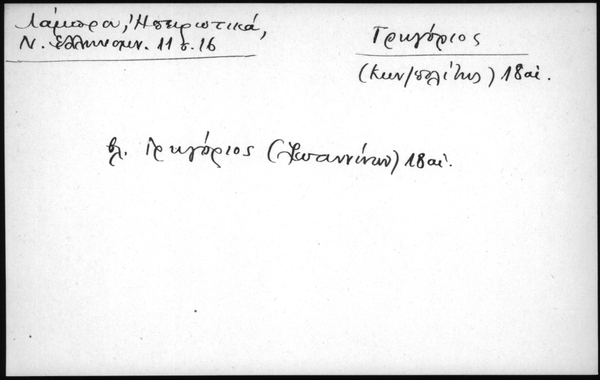 Λάμπρου, Ἠπειρωτικά,
Ν. Ἑλληνομν. 11 σ. 16
Γρηγόριος
(Κων/πολίτης) 18 αἰ.
βλ. Γρηγόριος (Ἰωαννίνων) 18 αἰ.